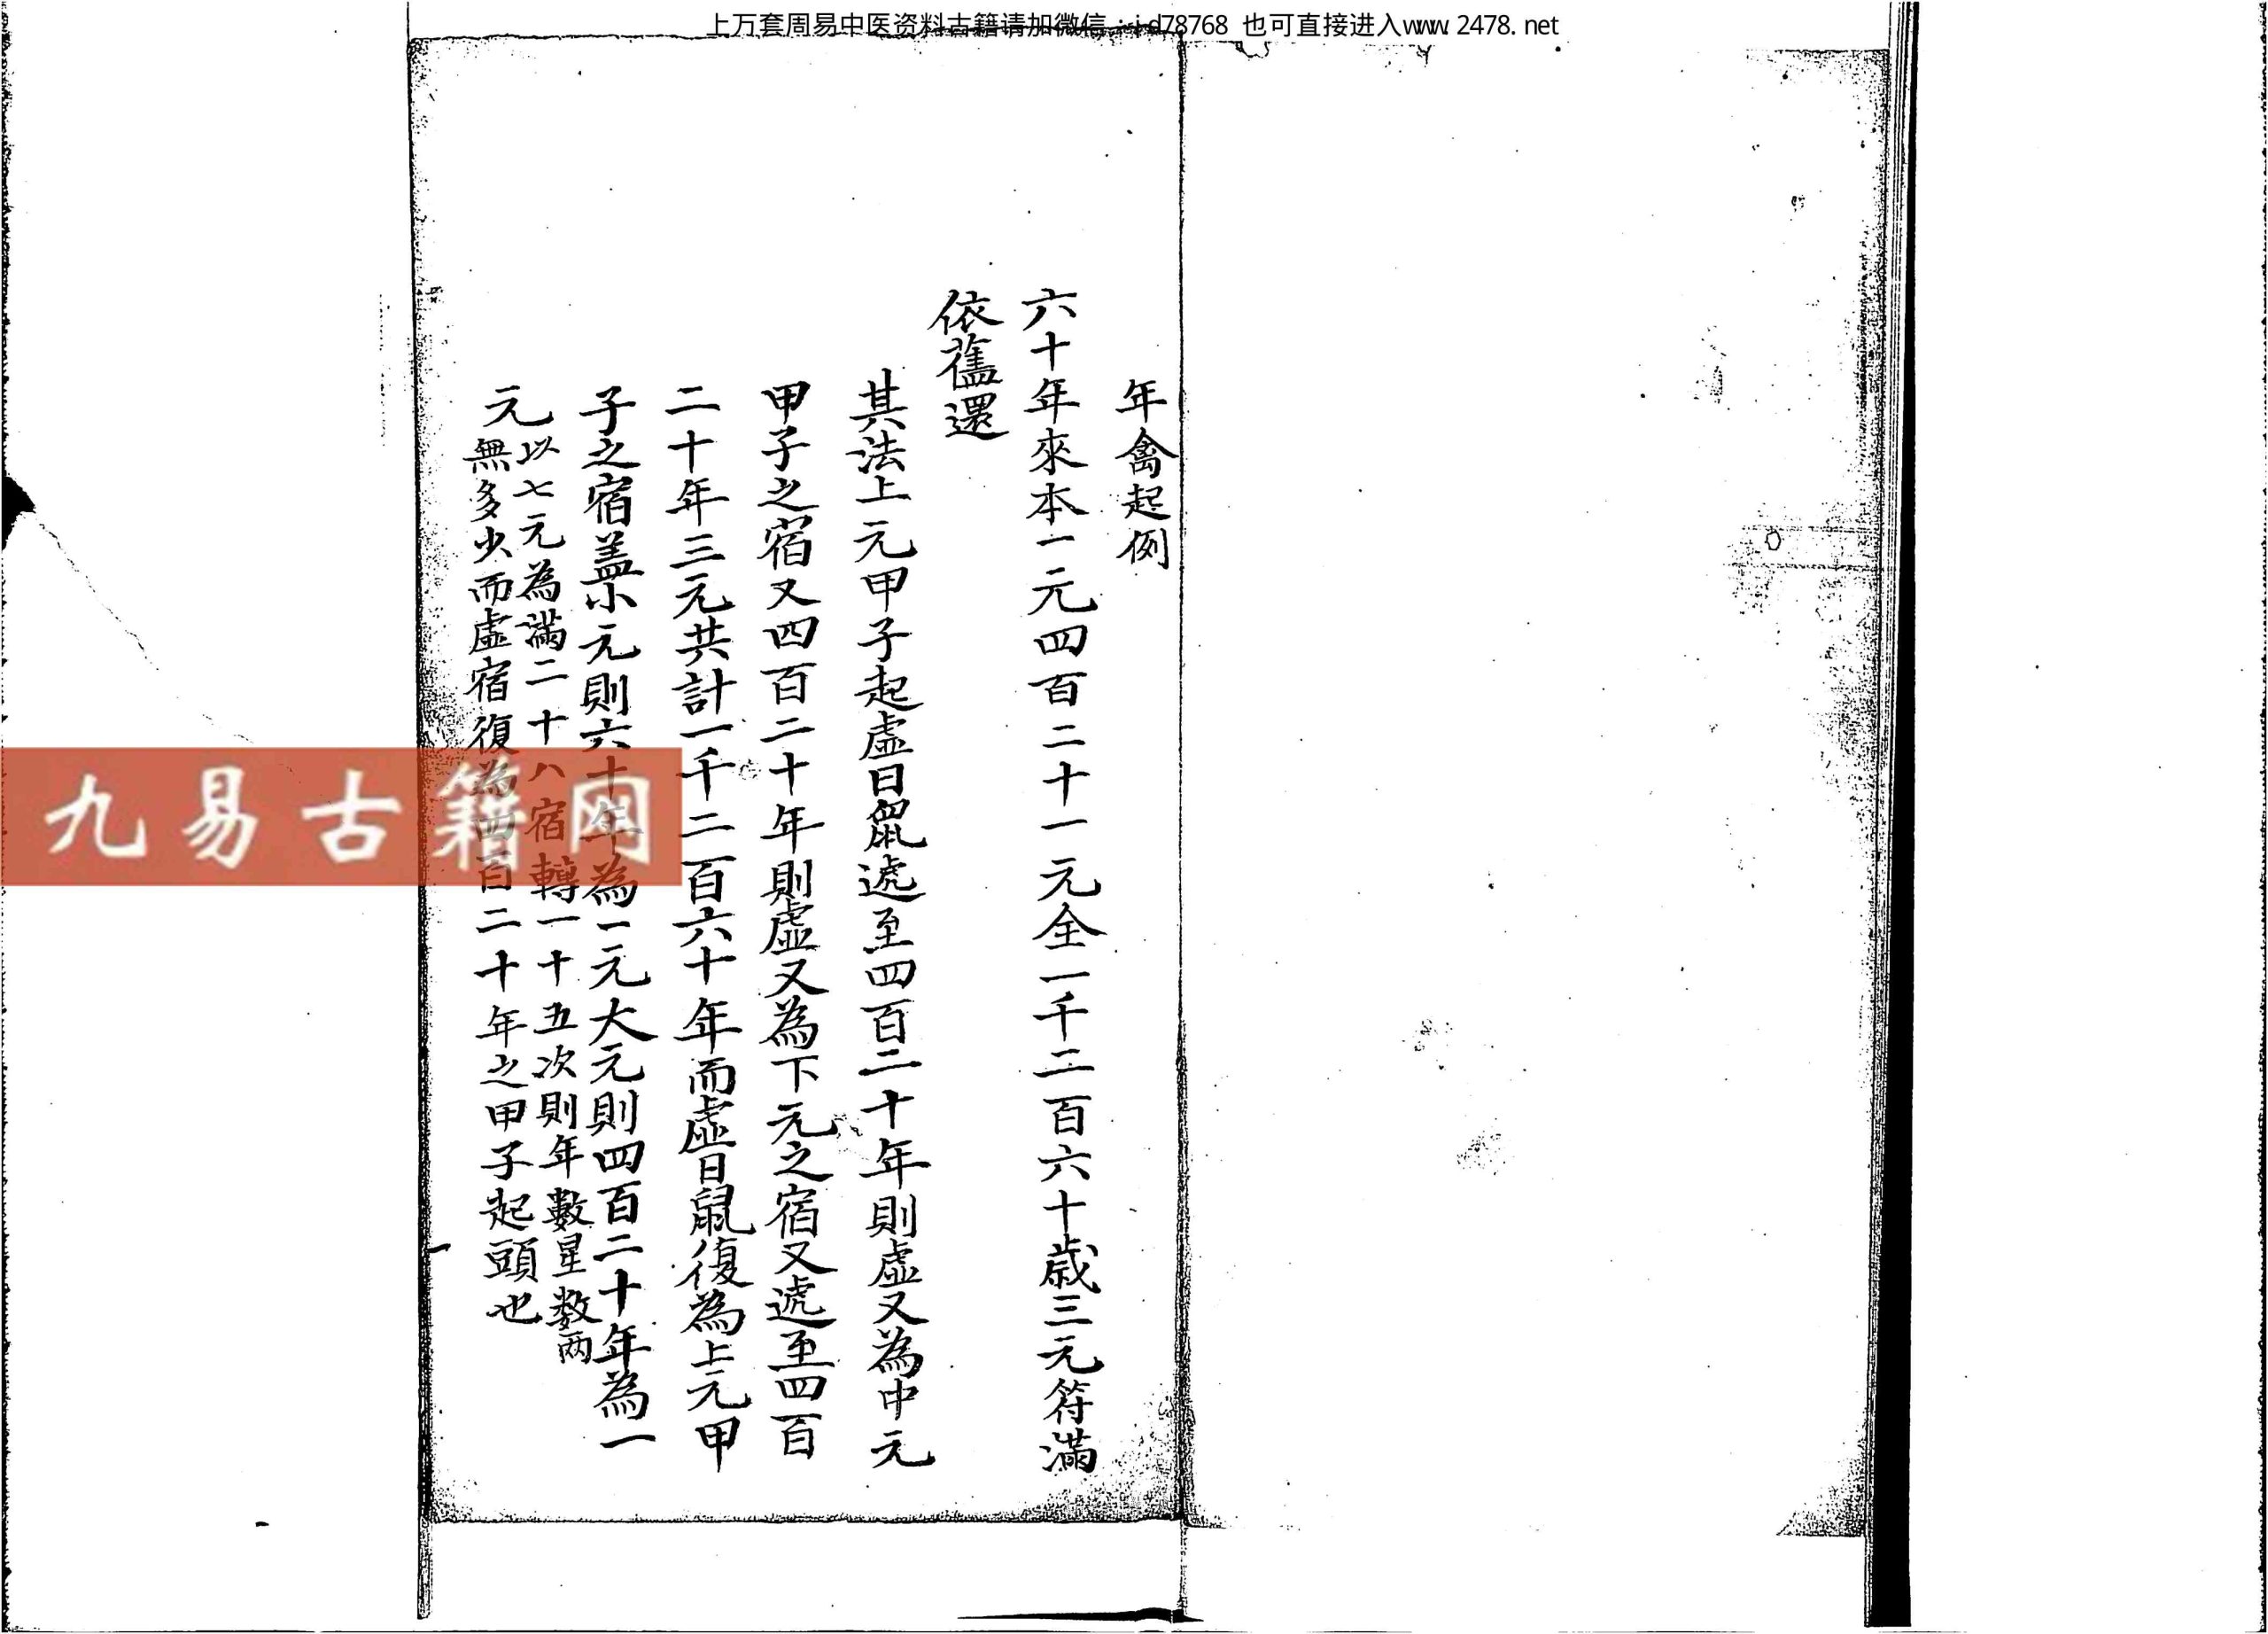 上万套周易中医资料古籍请加微信：j-d78768 也可直接进入www.2478.net
年禽起例
六十年來本一元四百二十一元全一千二百六十歲三元符滿
依舊還
其法上元甲子起虛日鼠遞至四百二十年則虛又為中元
甲子之宿又四百二十年則虛又為下元之宿又遞至四百
二十年三元共計一千二百六十年而虛日鼠復為上元甲
子之宿蓋小元則六十年為一元大元則四百二十年為一
元
以七元為滿二十八宿轉一十五次則年數星数両
無多少而虛宿復為四百二十年之甲子起頭也
九易古籍网